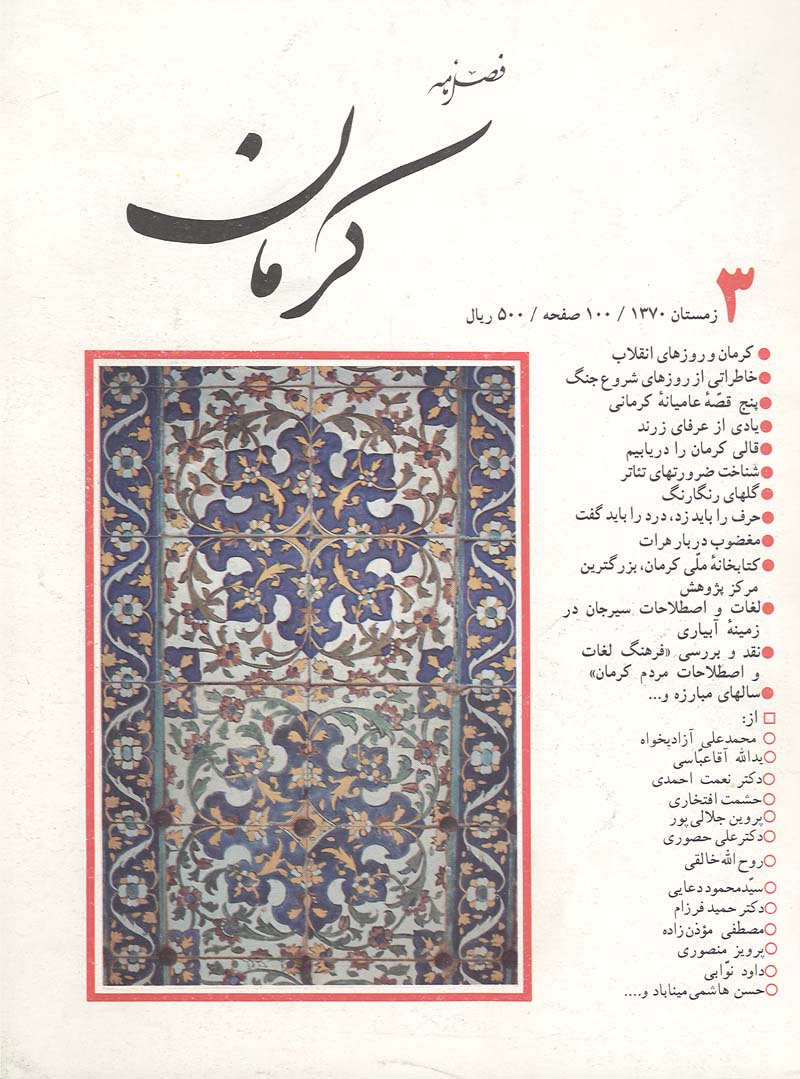 فصلنامه
کرمان
۳
زمستان ۱۳۷۰ / ۱۰۰ صفحه / ۵۰۰ ریال
● کرمان و روزهای انقلاب
● خاطراتی از روزهای شروع جنگ
● پنج قصّهٔ عامیانهٔ کرمانی
● یادی از عرفای زرند
● قالی کرمان را دریابیم
● شناخت ضرورتهای تئاتر
● گلهای رنگارنگ
● حرف را باید زد، درد را باید گفت
● مغضوب دربار هرات
● کتابخانهٔ ملّی کرمان، بزرگترین
مرکز پژوهش
● لغات و اصطلاحات سیرجان در
زمینهٔ آبیاری
● نقد و بررسی «فرهنگ لغات
و اصطلاحات مردم کرمان»
● سالهای مبارزه و...
□ از:
○ محمدعلی آزادیخواه
○ یدالله آقاعبّاسی
○ دکتر نعمت احمدی
○ حشمت افتخاری
○ پروین جلالی پور
○ دکتر علی حصوری
○ روح الله خالقی
○ سیّدمحمود دعایی
○ دکتر حمید فرزام
○ مصطفی مؤذن‌زاده
○ پرویز منصوری
○ داود نوّابی
○ حسن هاشمی میناباد و....